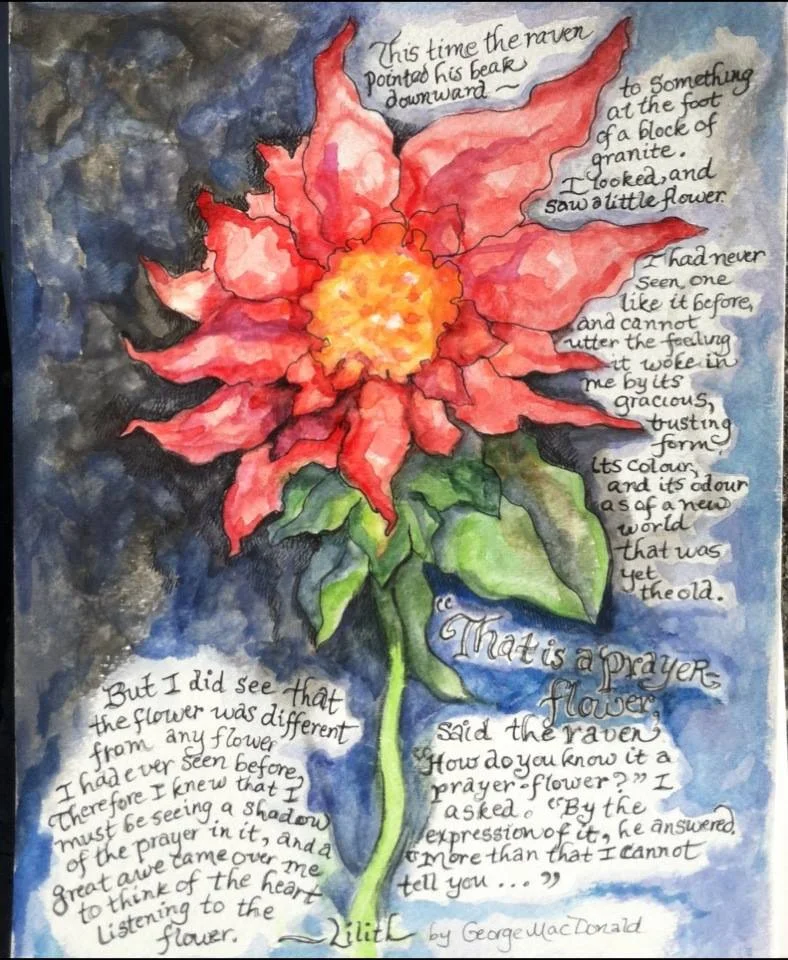 This time the raven
pointed his beak
downward ~
to something
at the foot
of a block of
granite.
I looked, and
saw a little flower.
I had never
seen one
like it before,
and cannot
utter the feeling
it woke in
me by its
gracious,
trusting
form,
its colour,
and its odour
as of a new
world
that was
yet
the old.
"That is a prayer-
flower,
said the raven"
"How do you know it a
prayer-flower?" I
asked. "By the
expression of it, he answered.
"More than that I cannot
tell you ..."
But I did see that
the flower was different
from any flower
I had ever seen before,
Therefore I knew that I
must be seeing a shadow
of the prayer in it, and a
great awe came over me
to think of the heart
Listening to the
flower.
—Lilith by George MacDonald